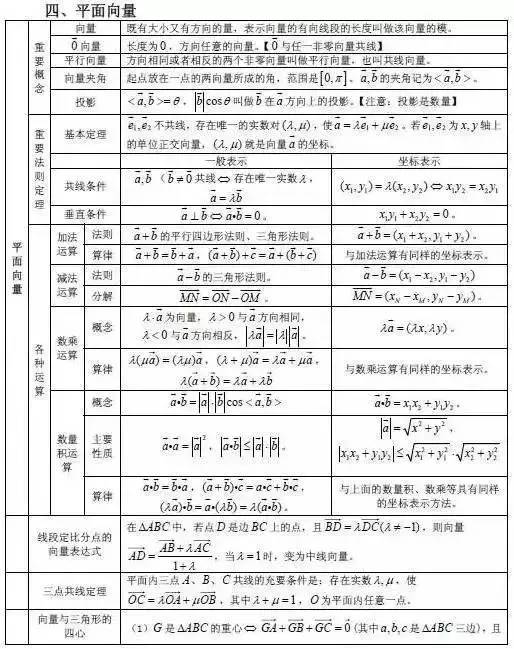 四、平面向量
平面向量
重要概念
向量 既有大小又有方向的量，表示向量的有向线段的长度叫做该向量的模。
0⃗向量 长度为0，方向任意的向量。【0⃗与任一非零向量共线】
平行向量 方向相同或者相反的两个非零向量叫做平行向量，也叫共线向量。
向量夹角 起点放在一点的两向量所成的角，范围是[0,π]。a⃗,b⃗的夹角记为<a⃗,b⃗>。
投影 <a⃗,b⃗>=θ，|b⃗|cosθ叫做b⃗在a⃗方向上的投影。【注意：投影是数量】
重要法则定理
基本定理 e⃗₁,e⃗₂不共线，存在唯一的实数对(λ,μ)，使a⃗=λe⃗₁+μe⃗₂。若e⃗₁,e⃗₂为x,y轴上
的单位正交向量，(λ,μ)就是向量a⃗的坐标。
一般表示 坐标表示
共线条件 a⃗,b⃗（b⃗≠0⃗共线⇔存在唯一实数λ， a⃗=λb⃗ (x₁,y₁)=λ(x₂,y₂)⇔x₁y₂=x₂y₁
垂直条件 a⃗⊥b⃗⇔a⃗•b⃗=0。 x₁y₁+x₂y₂=0。
各种运算
加法运算 法则 a⃗+b⃗的平行四边形法则、三角形法则。 a⃗+b⃗=(x₁+x₂,y₁+y₂)。
算律 a⃗+b⃗=b⃗+a⃗，(a⃗+b⃗)+c⃗=a⃗+(b⃗+c⃗) 与加法运算有同样的坐标表示。
减法运算 法则 a⃗−b⃗的三角形法则。 a⃗−b⃗=(x₁−x₂,y₁−y₂)
分解 MN⃗=ON⃗−OM⃗。 MN⃗=(x_N−x_M,y_N−y_M)。
数乘运算 概念 λ·a⃗为向量，λ>0与a⃗方向相同，
λ<0与a⃗方向相反，|λa⃗|=|λ||a⃗|。 λa⃗=(λx,λy)。
算律 λ(μa⃗)=(λμ)a⃗，(λ+μ)a⃗=λa⃗+μa⃗，
λ(a⃗+b⃗)=λa⃗+λb⃗ 与数乘运算有同样的坐标表示。
数量积运算 概念 a⃗•b⃗=|a⃗|·|b⃗|cos<a⃗,b⃗> a⃗•b⃗=x₁x₂+y₁y₂。
主要性质 a⃗•a⃗=|a⃗|²，|a⃗•b⃗|≤|a⃗|·|b⃗|。 |a⃗|=√(x²+y²)，
|x₁x₂+y₁y₂|≤√(x₁²+y₁²)·√(x₂²+y₂²)
算律 a⃗•b⃗=b⃗•a⃗，(a⃗+b⃗)•c⃗=a⃗•c⃗+b⃗•c⃗，
(λa⃗)•b⃗=a⃗•(λb⃗)=λ(a⃗•b⃗)。 与上面的数量积、数乘等具有同样的坐标表示方法。
线段定比分点的向量表达式 在ΔABC中，若点D是边BC上的点，且BD⃗=λDC⃗(λ≠−1)，则向量
AD⃗=(AB⃗+λAC⃗)/(1+λ)，当λ=1时，变为中线向量。
三点共线定理 平面内三点A、B、C共线的充要条件是：存在实数λ,μ，使
OC⃗=λOA⃗+μOB⃗，其中λ+μ=1，O为平面内任意一点。
向量与三角形的四心 （1）G是ΔABC的重心⇔GA⃗+GB⃗+GC⃗=0⃗(其中a,b,c是ΔABC三边)，且